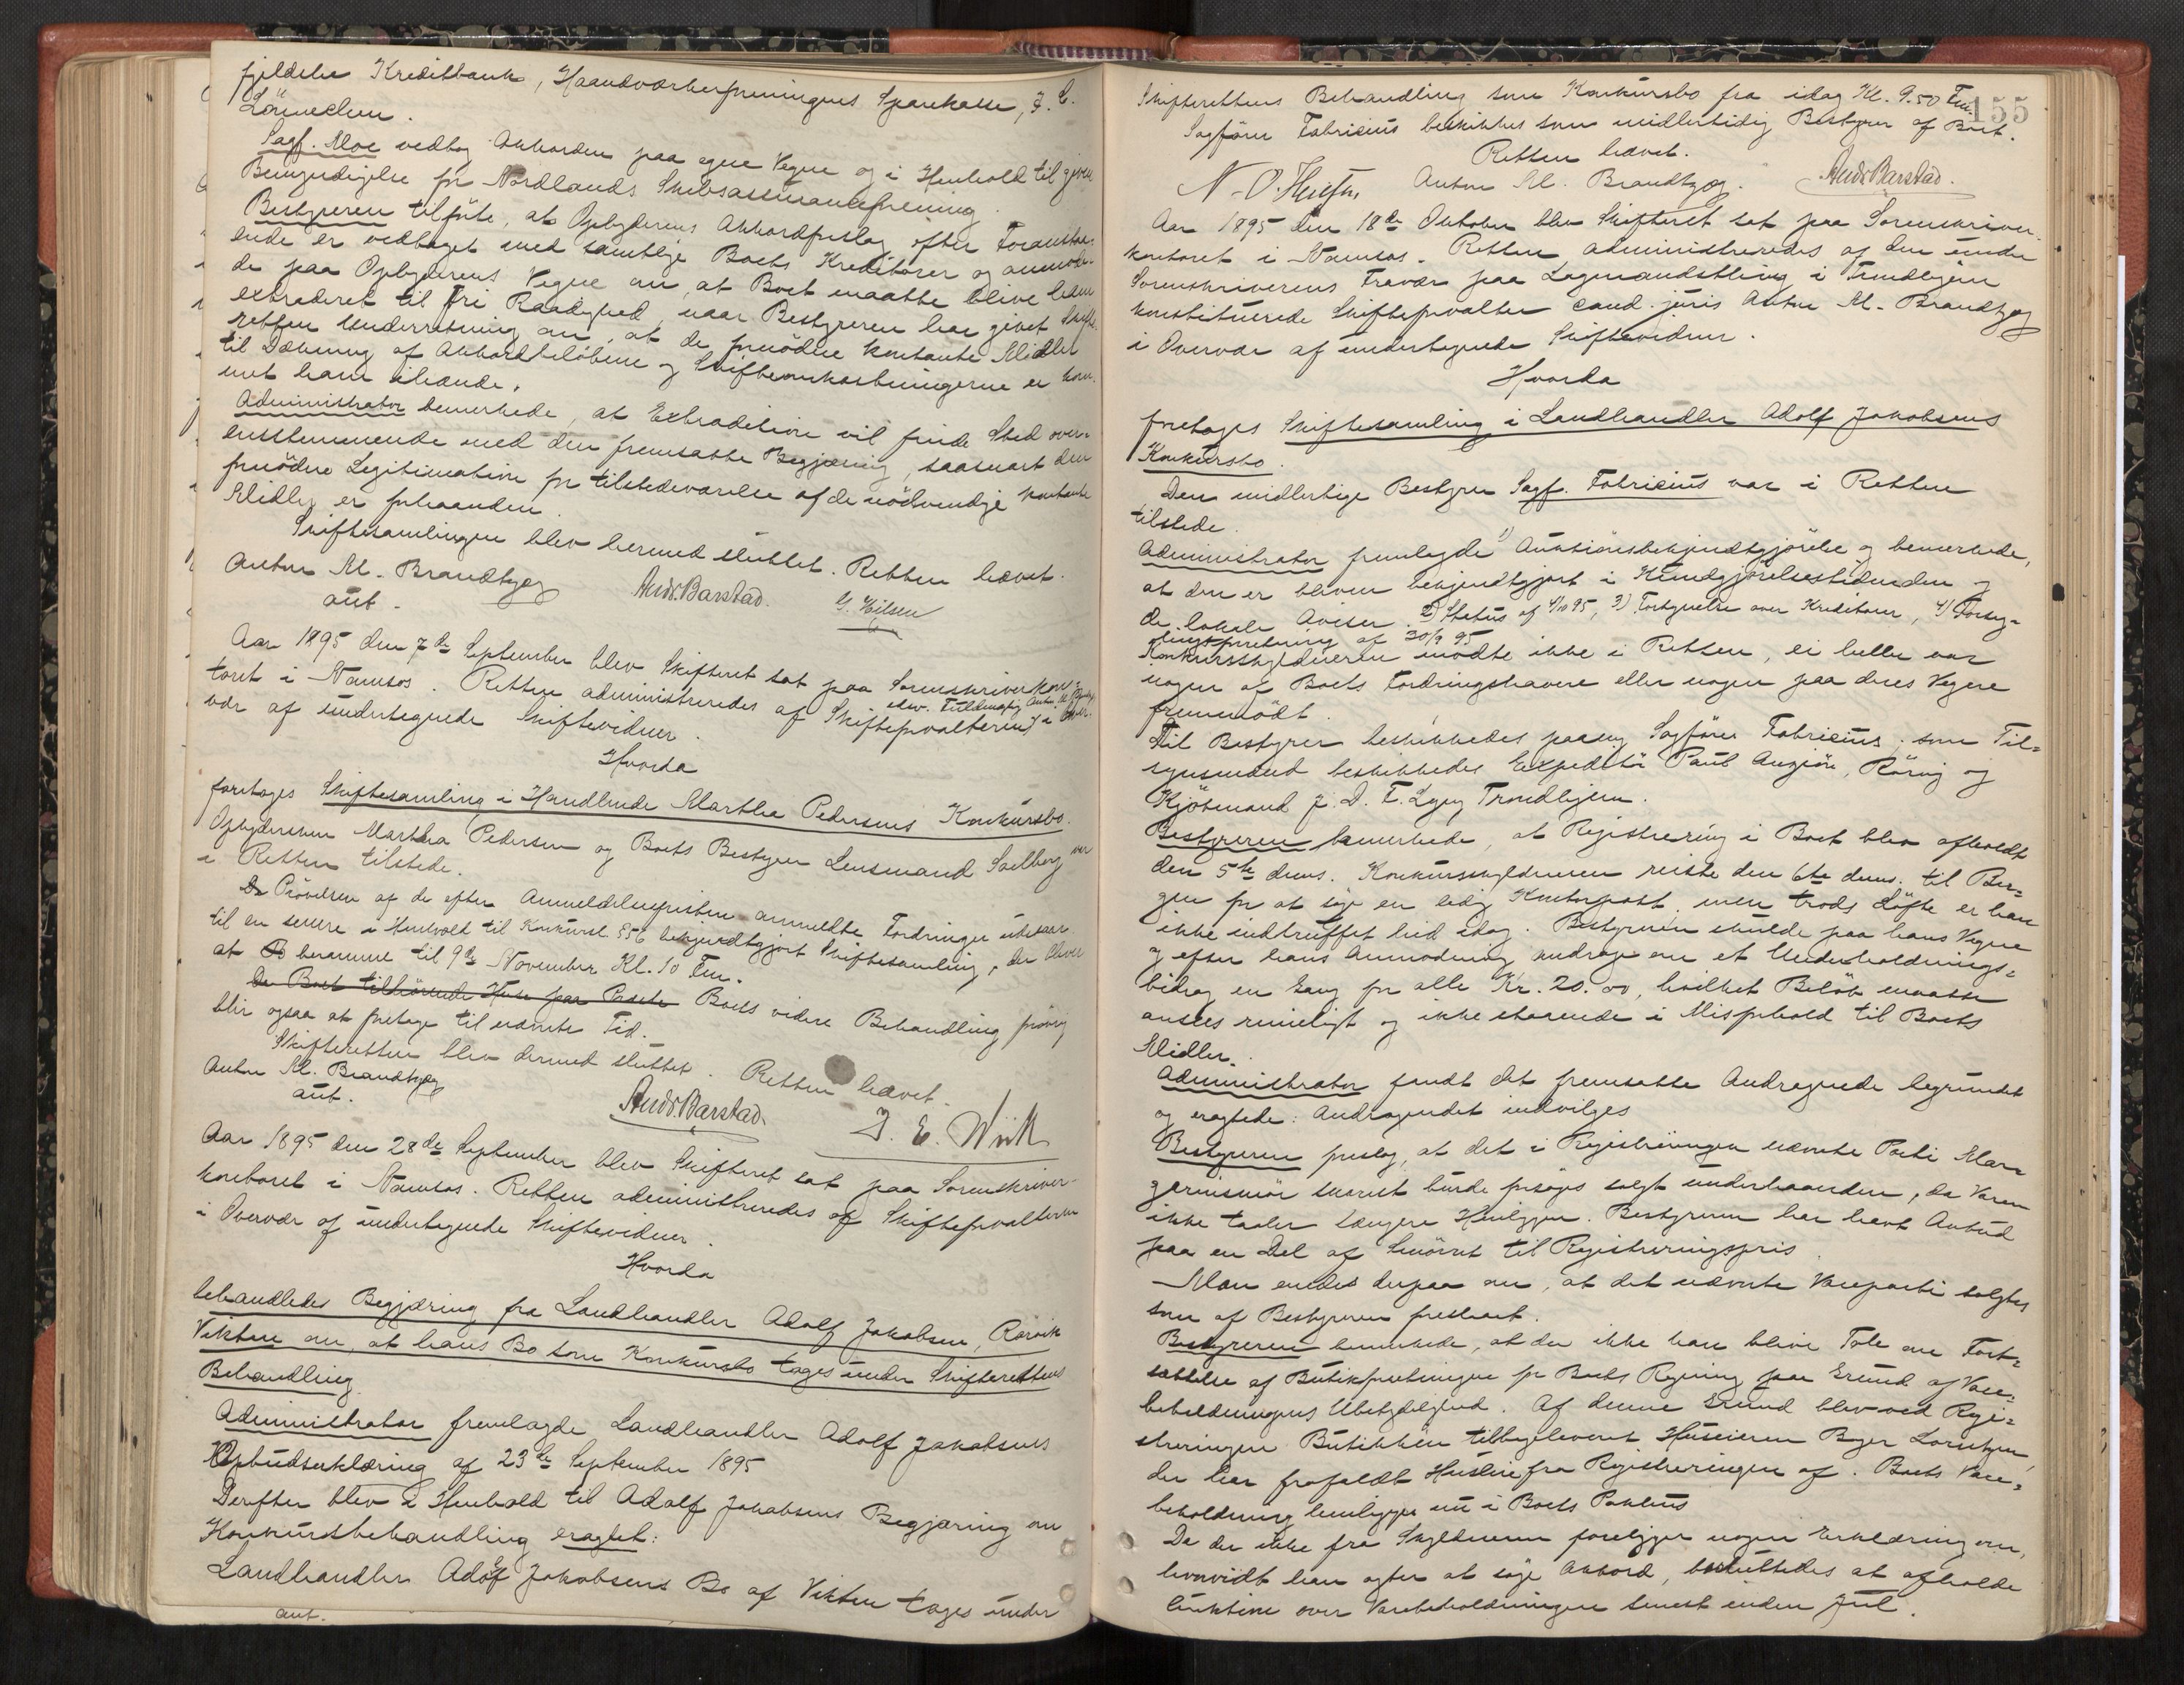 fjeldske Kreditbank, Haandværkerforeningens Sparekasse, J. C.
Lönvechen.
Sagf. Moe vedtog Akkorden paa egne Vegne og i Henhold til given
Bemyndigelse for Nordlands Skibsassuranceforening.
Bestyreren tilföiede, at Opbyderens Akkordforslag efter Foranstaa-
ende er vedtaget med samtlige Boets Kreditorer og anmode-
de paa Opbyderens Vegne om, at Boet maatte blive ham
extraderet til fri Raadighed, naar Bestyreren har givet Skifte-
retten Underretning om, at de fornödne kontante Midler
til Dækning af Akkordbelöbene og Skifteomkostningerne er kom-
met ham ihænde.
Administrator bemerkede, at Extradition vil finde Sted over-
ensstemmende med den fremsatte Begjæring, saasnart den
fornödne Legitimation for tilstedeværelse af de nödvendige kontante
Midler er forhaanden.
Skiftesamlingen blev hermed sluttet. Retten hævet.
Anton M. Brandtzæg
aut.
Ands. Barstad.
Aar 1895 den 7de September blev Skifteret sat paa Sorenskriverkon-
toret i Namsos. Retten administreredes af Skifteforvalteren v/
edsv. Fuldmægtig Anton M. Brandtzæg i Over-
vær af undertegnede Skiftevidner.
Hvorda
foretoges Skiftesamling i Handlende Martha Pedersens Konkursbo.
Opbydersken Martha Pedersen og Boets Bestyrer Lensmand Solberg var
i Retten tilstede.
Prövelsen af de efter Anmeldelsesfristen anmeldte Fordringer udstaar
til en senere i Henhold til Konkursl. § 56 bekjendtgjort Skiftesamling, der bliver
at beramme til 9de November Kl. 10 Fm.
Da Boet tilhörende Huse paa Boets videre Behandling forövrig
blir ogsaa at foretage til nævnte Tid.
Skifteretten blev dermed sluttet. Retten hævet.
Anton M. Brandtzæg
aut.
Ands. Barstad.
J. E. Wiik
Aar 1895 den 28de September blev Skifteret sat paa Sorenskriver-
kontoret i Namsos. Retten administreredes af Skifteforvalteren
i Overvær af undertegnede Skiftevidner.
Hvorda
behandledes Begjæring fra Landhandler Adolf Jakobsen, Rörvik
Vikten om, at hans Bo som Konkursbo tages under Skifterettens
Behandling.
Administrator fremlagde Landhandler Adolf Jakobsens
Opbudserklæring af 23de September 1895
Derefter blev i Henhold til Adolf Jakobsens Begjæring om
Konkursbehandling eragtet:
Landhandler Adolf Jakobsens Bo af Vikten tages under
aut.
155
Skifterettens Behandling som Konkursbo fra idag Kl. 9.50 Fm.
Sagförer Fabricius beskikkes som midlertidig Bestyrer af Boet.
Retten hævet.
Anton M. Brandtzæg. Ands. Barstad.
Aar 1895 den 18de Oktober blev Skifteret sat paa Sorenskriver-
kontoret i Namsos. Retten administreredes af den under
Sorenskriverens Fravær paa Lagmandsthing i Trondhjem
konstituerede Skifteforvalter cand. juris Anton M. Brandtzæg
i Overvær af undertegnede Skiftevidner.
Hvorda
foretoges Skiftesamling i Landhandler Adolf Jakobsens
Konkursbo.
Den midlertige Bestyrer Sagf. Fabricius var i Retten
tilstede.
Administrator fremlagde 1) Auktionsbekjendtgjörelse og bemerkede,
at den er bleven bekjendtgjort i Kundgjörelsestidenden og
de lokale Aviser. 2) Status af 4/10 95, 3) Fortegnelse over Kreditorer, 4) Forseg-
lingsforretning af 30/9 95
Konkursskyldneren mödte ikke i Retten, ei heller var
nogen af Boets Fordringshavere eller nogen paa deres Vegne
fremmödt.
Til Bestyrer beskikkedes paany Sagförer Fabricius, som Til-
synsmænd beskikkedes Expeditör Paul Anzjön, Rörvig og
Kjöbmand J. D. F. Lyng Trondhjem.
Bestyreren bemerkede, at Registrering i Boet blev afholdt
den 5te dennes. Konkursskyldneren reiste den 6te dennes til Ber-
gen for at söge en ledig Kontorpost, men trods Löfte er han
ikke indtruffet hid idag. Bestyreren skulde paa hans Vegne
og efter hans Anmodning andrage om et Underholdnings-
bidrag en Gang for alle Kr. 20.00, hvilket Belöb maatte
ansees rimeligt og ikke staaende i Misforhold til Boets
Midler.
Administrator fandt det fremsatte Andragende begrundet
og eragtede: Andragendet indvilges
Bestyreren foreslog, at det i Registreringen nævnte Parti Mar-
garinsmör snarest burde forsöges solgt underhaanden, da Varen
ikke taaler længere Henliggen. Bestyreren har havt Anbud
paa en Del af Smörret til Registreringspris.
Man enedes derpaa om, at det nævnte Vareparti solgtes
som af Bestyreren foreslaaet.
Bestyreren bemerkede, at der ikke kan blive Tale om Fort-
sættelse af Butikforretningen for Boets Regning paa Grund af Vare-
beholdningens Ubetydelighed. Af denne Grund blev ved Regi-
streringen Butikken tilbageleveret Huseieren Roger Lorntzen,
der har frafaldt Husleie fra Registreringen af. Boets Vare-
beholdning henligger nu i Boets Pakhus
Da der ikke fra Skyldneren foreligger nogen Erklæring om,
hvorvidt han agter at söge Akkord, besluttedes at afholde
Auktion over Varebeholdningen senest inden Jul.